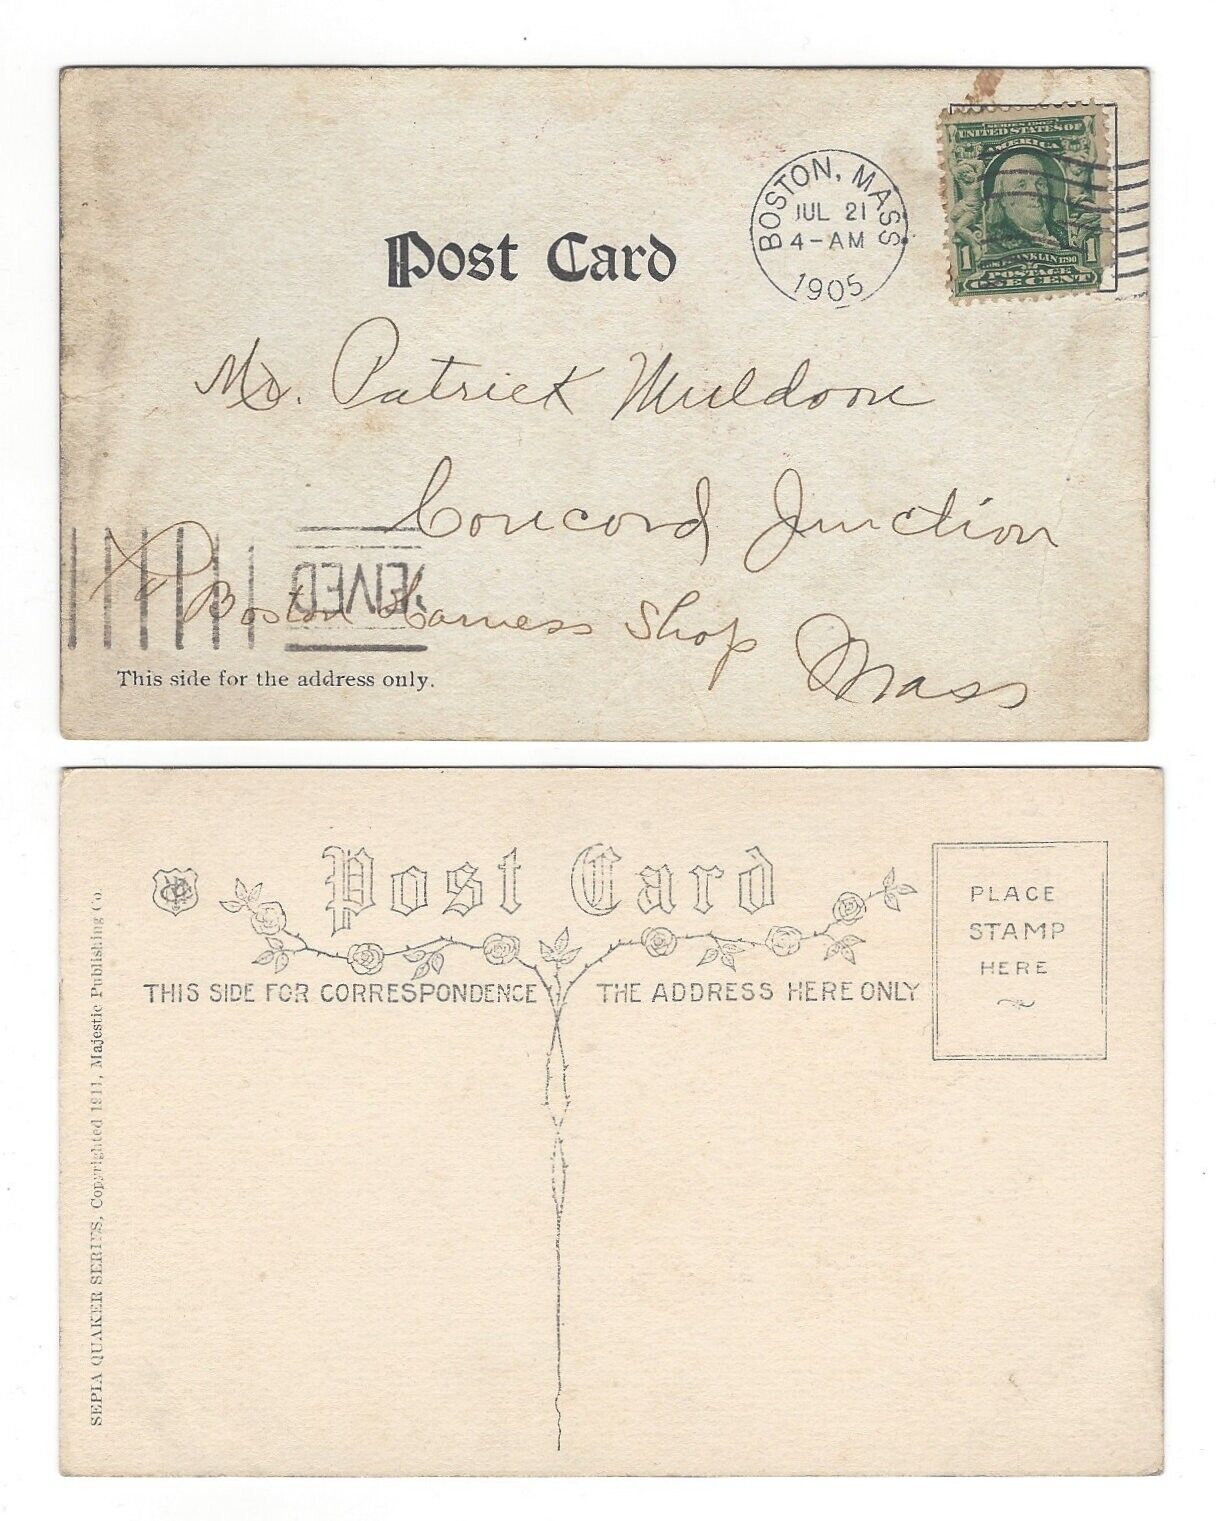 Post Card
BOSTON, MASS.
JUL 21
4-AM
1905
SERIES 1902
UNITED STATES OF
AMERICA
1 FRANKLIN 1790 1
POSTAGE
ONE CENT
Mr. Patrick Muldoon
Concord Junction
Boston Harness Shop
Mass
EIVED
This side for the address only.
Post Card
THIS SIDE FOR CORRESPONDENCE THE ADDRESS HERE ONLY
PLACE
STAMP
HERE
SEPIA QUAKER SERIES, Copyrighted 1911, Majestic Publishing Co.